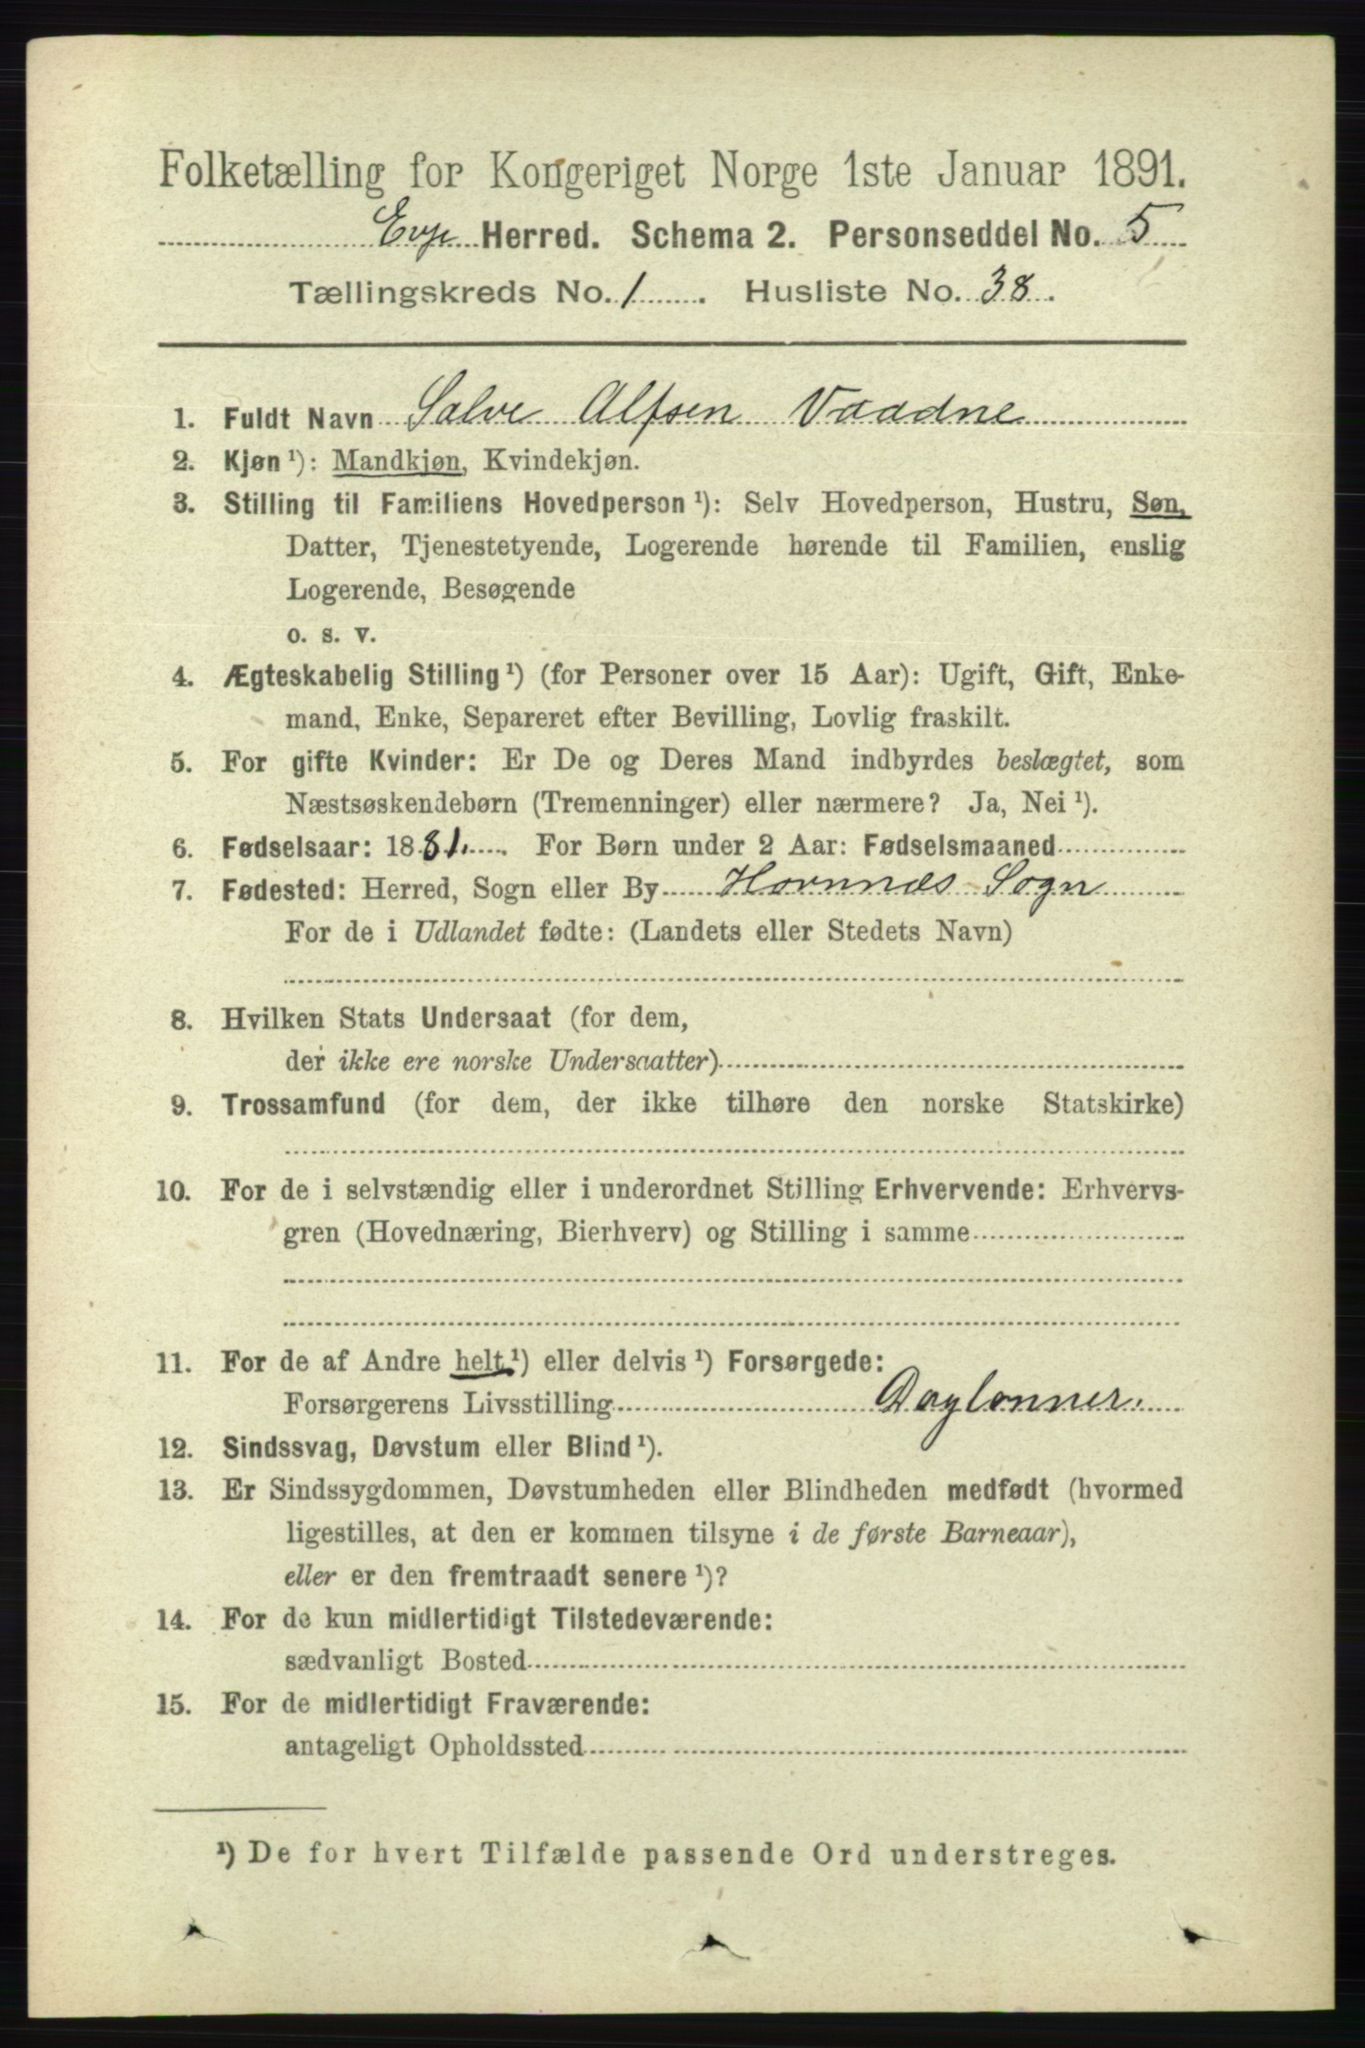 Folketælling for Kongeriget Norge 1ste Januar 1891.
Evje Herred. Schema 2. Personseddel No. 5
Tællingskreds No. 1. Husliste No. 38.
1. Fuldt Navn Salve Alfsen Vaadne
2. Kjøn ¹): Mandkjøn, Kvindekjøn.
3. Stilling til Familiens Hovedperson ¹): Selv Hovedperson, Hustru, Søn,
Datter, Tjenestetyende, Logerende hørende til Familien, enslig
Logerende, Besøgende
o. s. v.
4. Ægteskabelig Stilling ¹) (for Personer over 15 Aar): Ugift, Gift, Enke-
mand, Enke, Separeret efter Bevilling, Lovlig fraskilt.
5. For gifte Kvinder: Er De og Deres Mand indbyrdes beslægtet, som
Næstsøskendebørn (Tremenninger) eller nærmere? Ja, Nei ¹).
6. Fødselsaar: 1881. For Børn under 2 Aar: Fødselsmaaned
7. Fødested: Herred, Sogn eller By Hornnæs Sogn
For de i Udlandet fødte: (Landets eller Stedets Navn)
8. Hvilken Stats Undersaat (for dem,
der ikke ere norske Undersaatter)
9. Trossamfund (for dem, der ikke tilhøre den norske Statskirke)
10. For de i selvstændig eller i underordnet Stilling Erhvervende: Erhvervs-
gren (Hovednæring, Bierhverv) og Stilling i samme
11. For de af Andre helt ¹) eller delvis ¹) Forsørgede:
Forsørgerens Livsstilling Daglonner.
12. Sindssvag, Døvstum eller Blind ¹).
13. Er Sindssygdommen, Døvstumheden eller Blindheden medfødt (hvormed
ligestilles, at den er kommen tilsyne i de første Barneaar),
eller er den fremtraadt senere ¹)?
14. For de kun midlertidigt Tilstedeværende:
sædvanligt Bosted
15. For de midlertidigt Fraværende:
antageligt Opholdssted
¹) De for hvert Tilfælde passende Ord understreges.